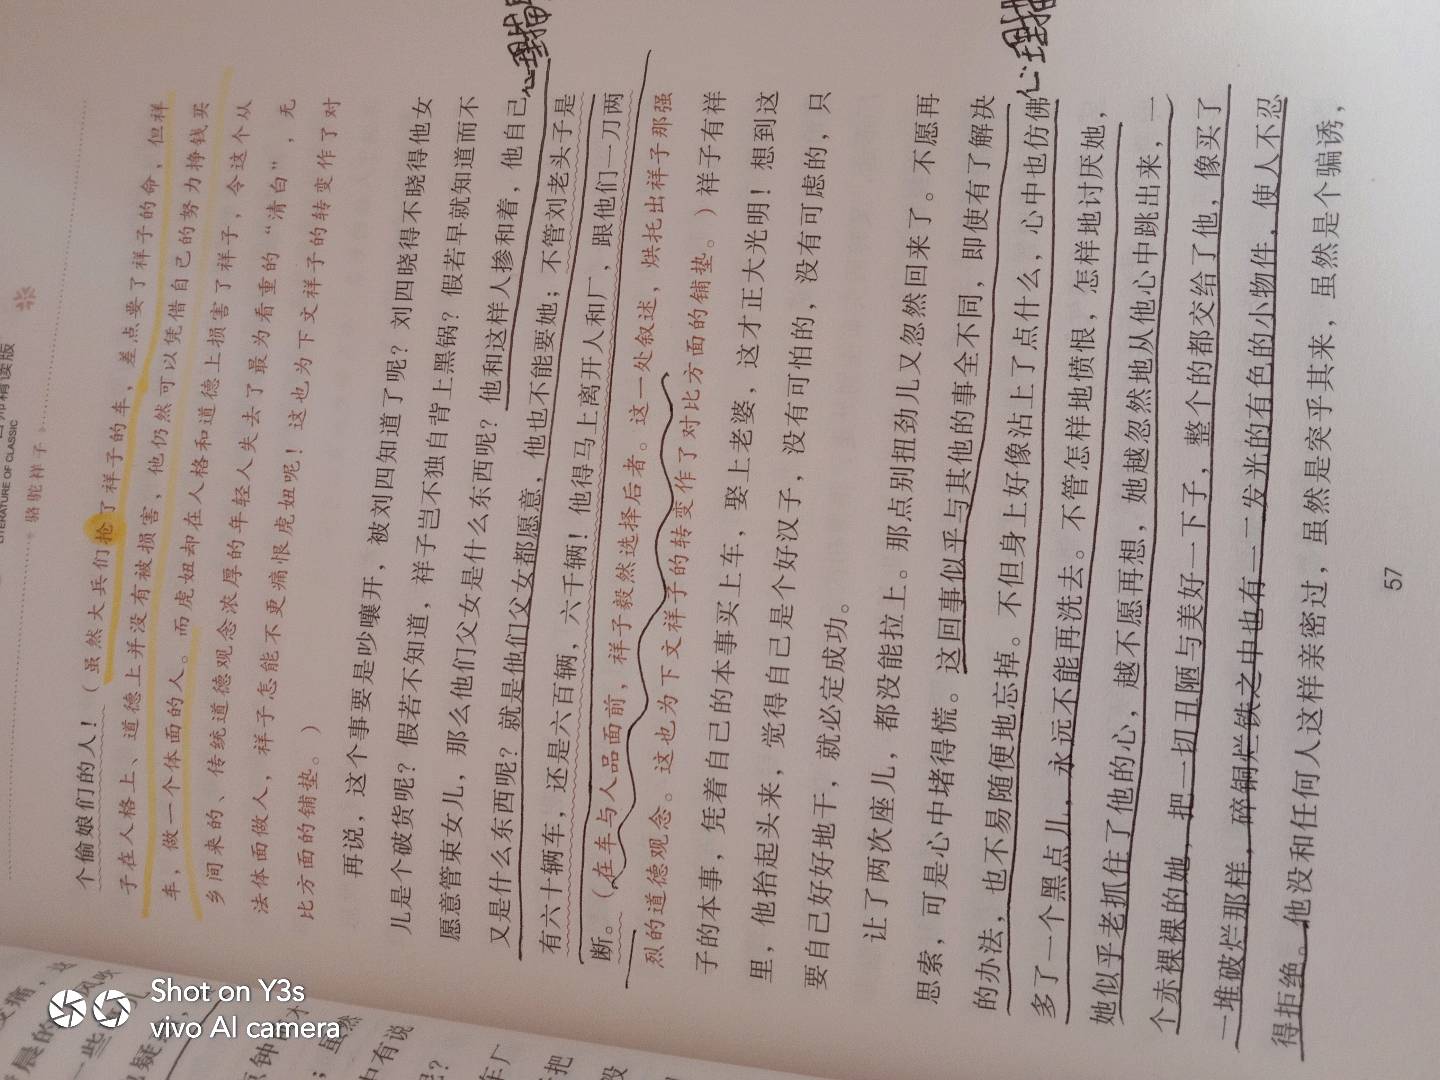 名师精读版
LITERATURE OF CLASSIC
骆驼祥子
个偷娘们的人！（虽然大兵们抢了祥子的车，差点要了祥子的命，但祥
子在人格上、道德上并没有被损害，他仍然可以凭借自己的努力挣钱买
车，做一个体面的人。而虎妞却在人格和道德上损害了祥子，令这个从
乡间来的、传统道德观念浓厚的年轻人失去了最为看重的“清白”，无
法体面做人，祥子怎能不更痛恨虎妞呢！这也为下文祥子的转变作了对
比方面的铺垫。）
再说，这个事要是吵嚷开，被刘四知道了呢？刘四晓得不晓得他女
儿是个破货呢？假若不知道，祥子岂不独自背上黑锅？假若早就知道而不
愿意管束女儿，那么他们父女是什么东西呢？他和这样人掺和着，他自己
又是什么东西呢？就是他们父女都愿意，他也不能要她；不管刘老头子是
有六十辆车，还是六百辆，六千辆！他得马上离开人和厂，跟他们一刀两
断。（在车与人品面前，祥子毅然选择后者。这一处叙述，烘托出祥子那强
烈的道德观念。这也为下文祥子的转变作了对比方面的铺垫。）祥子有祥
子的本事，凭着自己的本事买上车，娶上老婆，这才正大光明！想到这
里，他抬起头来，觉得自己是个好汉子，没有可怕的，没有可虑的，只
要自己好好地干，就必定成功。
让了两次座儿，都没能拉上。那点别扭劲儿又忽然回来了。不愿再
思索，可是心中堵得慌。这回事似乎与其他的事全不同，即使有了解决
的办法，也不易随便地忘掉。不但身上好像沾上了点什么，心中也仿佛
多了一个黑点儿，永远不能再洗去。不管怎样地愤恨，怎样地讨厌她，
她似乎老抓住了他的心，越不愿再想，她越忽然地从他心中跳出来，一
个赤裸裸的她，把一切丑陋与美好一下子，整个的都交给了他，像买了
一堆破烂那样，碎铜烂铁之中也有一二发光的有色的小物件，使人不忍
得拒绝。他没和任何人这样亲密过，虽然是突乎其来，虽然是个骗诱，
57
心理描
心理描
Shot on Y3s
vivo AI camera